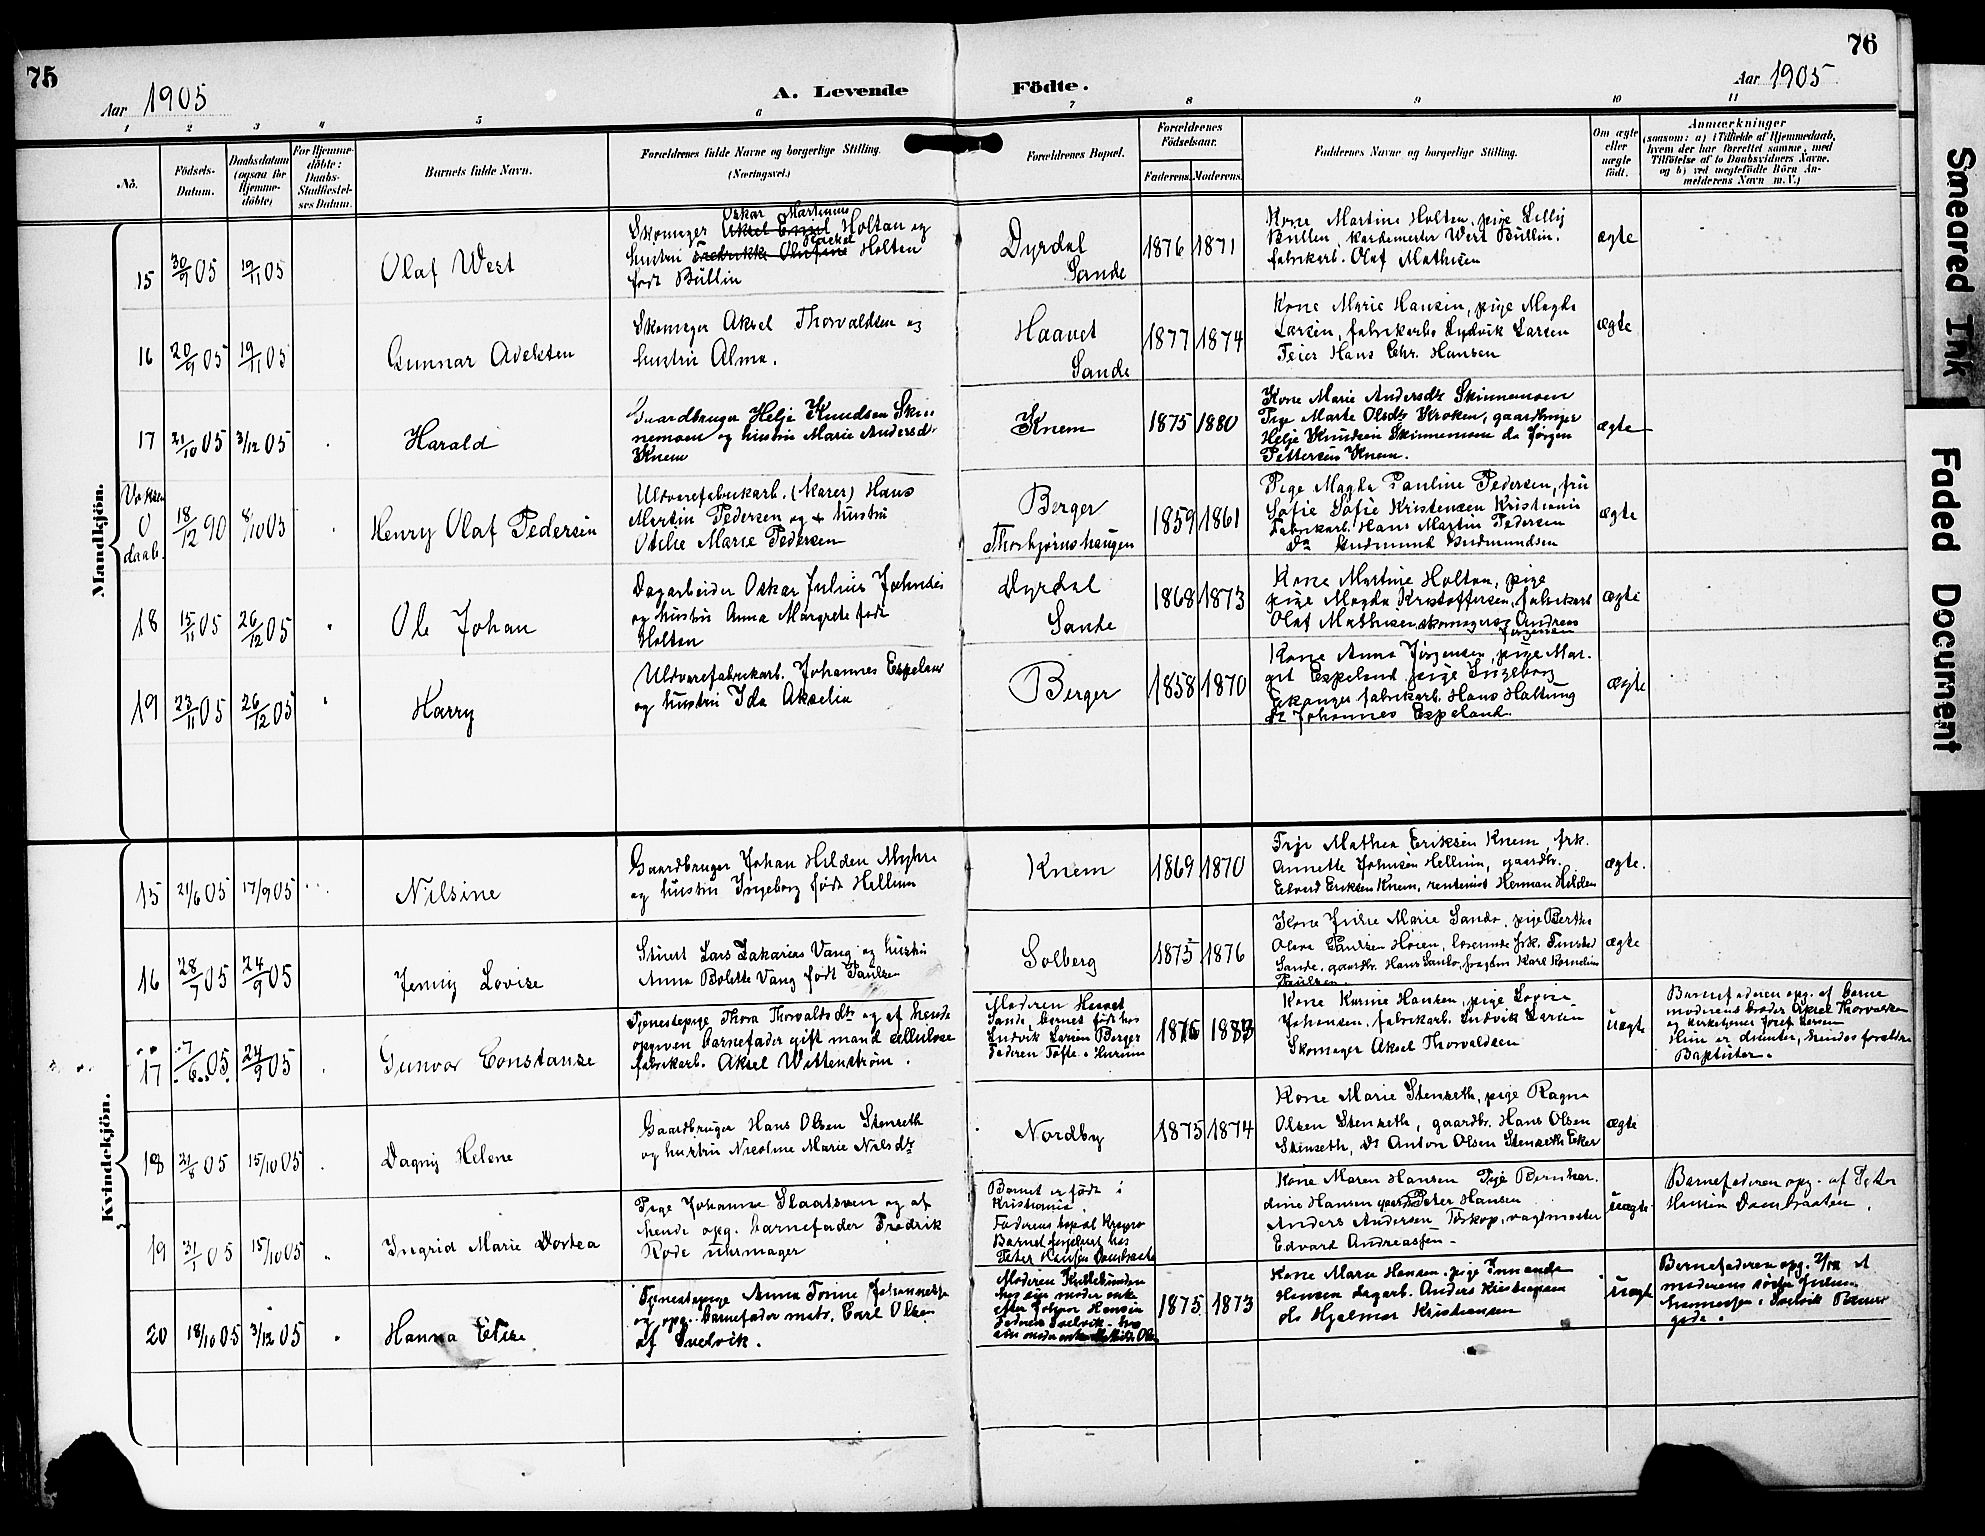 75
Aar 1905
A. Levende
Födte.
76
Aar 1905
1 2 3 4 5 6 7 8 9 10 11
No.
Födsels-
Datum.
Daabsdatum
(ogsaa for
Hjemme-
döbte)
For Hjemme-
döbte:
Daabs-
Stadfæstel-
ses Datum.
Barnets fulde Navn.
Forældrenes fulde Navne og borgerlige Stilling.
(Næringsvei.)
Forældrenes Bopæl.
Forældrenes
Födselsaar.
Faderens. Moderens.
Faddernes Navne og borgerlige Stilling.
Om ægte
eller
uægte
födt.
Anmærkninger
(saasom: a) i Tilfælde af Hjemmedaab,
hvem der har forrettet samme, med
Tilföielse af to Daabsvidners Navne,
og b) ved uægtefödte Börn An-
melderens Navn m. V.)
Mandkjön.
15 30/9 05 19/11 05 Olaf West
Oskar Martinius
Skomager Aksel Emil Holtan og
Rachel
hustru Fredrikke Olufine Holten
født Büllin
Dyrdal
Sande
1876 1871
Kone Martine Holten, pige Lelly
Büllen, kardemester West Büllin.
fabrikarb. Olaf Mathisen
ægte
16 20/9 05 19/11 05 Gunnar
Skomager Aksel Thorvaldsen og
hustru Alma.
Haavet
Sande
1877 1874
Kone Marie Hansen, pige Magda
Larsen, fabrikarb. Ludvik Larsen
Feier Hans Chr. Hansen
ægte
17 21/10 05 3/12 05 Harald
Gaardbruger Helje Knudsen Skin
nemoen og hustru Marie Andersd.
Knem
Knem
1875 1880
Kone Marie Andersdt Skinnemoen
Pige Marte Olsdt Kroken, gaardbruger
Helje Knudsen Skinnemoen do Jørgen
Pettersen Knem.
ægte
Voksen
0
daab.
18/12 90 8/10 05 Henry Olaf Pedersen
Uldvarefabrikarb. (Karer) Hans
Martin Pedersen og hustru
Otilie Marie Pedersen
Berger
Thorbjørnshaugen
1859 1861
Pige Magda Pauline Pedersen, fru
Sofie Sofie Kristensen Kristiania
Fabrikarb. Hans Martin Pedersen
Do Gudmund Gudmundsen
ægte
18 15/11 05 26/12 05 Ole Johan
Dagarbeider Oskar Julius Johnsen
og hustru Anna Margrete født
Holtan
Dyrdal
Sande
1868 1873
Kone Martine Holtan, pige
pige Magda Kristoffersen, fabrikarb
Olaf Mathisen skomager Andreas
Jørgensen
ægte
19 23/11 05 26/12 05 Harry
Uldvarefabrikarb. Johannes Espeland
og hustru Ida Akselia
Berger
1858 1870
Kone Anna Jørgensen, pige Mar-
git Espeland pige Ingeborg
fabrikarb. Hans Haltung
Johannes Espeland.
ægte
Kvindekjön.
15 21/6 05 17/9 05 Nilsine
Gaardbruger Johan Hilden Myhre
og hustru Ingeborg født Hellum
Knem
1869 1870
Pige Mathea Eriksen Knem, frk.
Annette Johnsen Hellum, gaardbr.
Edvard Eriksen Knem, rentenist Herman Hilden
ægte.
16 28/7 05 24/9 05 Jenny Lovise
Lars Zakarias Vang og hustru
Anna Bolette Vang født Paulsen
Solberg
1875 1876
Kone Julie Marie Sando, pige Berthe
Olava Paulsen Høien, frk.
Sande. gaardbr. Hans Sando, Karl Kornelius
Paulsen.
ægte
17 7/6 05 24/9 05 Gunvor Constanse
Tjenestepige Thora Thorvaldsdt og af hende
opgiven barnefader gift mand cellulose
fabrikarb. Aksel Wittenstrøm.
Moderen Haavet
Sande, barnet født hos
Ludvik Larsen Berger
Faderen Tofte. Hurum
1876 1883
Kone Karine Hansen, pige Lovise
Johansen, fabrikarb. Ludvik Larsen
Skomager Aksel Thorvaldsen
uægte
Barnefaderen opg. af barne
moderens broder Aksel Thorvaldsen
og kirketjener Josef Larsen
Hun er dissenter, hendes forældre
Baptister.
18 21/8 05 15/10 05 Dagny Helene
Gaardbruger Hans Olsen Stenseth
og hustru Nicoline Marie Nilsdt
Nordby
1875 1874
Kone Marie Stenseth, pige Ragna
Olsen Stenseth, gaardbr. Hans Olsen
Stenseth, Do Anton Olsen Stenseth Eker
ægte
19 31/1 05 15/10 05 Ingrid Marie Dortea
Pige Johanne Slaatsveen og af
hende opg. barnefader Fredrik
Rode uhrmager
Barnet er født i
Kristiania
Faderens bopæl Kragerø
Barnet forpleiet hos
Peter Hansen Dambraaten
Kone Maren Hansen Pige Bernhar-
dine Hansen Peter Hansen
Anders Andersen Torkop, vagtmester
Edvard Andreassen
uægte
Barnefaderen opg. af Peter
Hansen Dambraaten.
20 18/10 05 3/12 05 Hanna Elise
Tjenestepige Anna Tomine Johannesse
og opg. barnefader matr. Carl Olsen
af Svelvik.
Moderen
hos sin moder enke
efter Johan Hansen
Faderen Svelvik - hos
sin moder enke Mathilde Olsen
1875 1873
Kone Marie Hansen, pige
Hansen dagarb. Anders Kristiansen
do Hjalmar Kristiansen
uægte
Barnefaderen opg. af
moderens
Svelvik